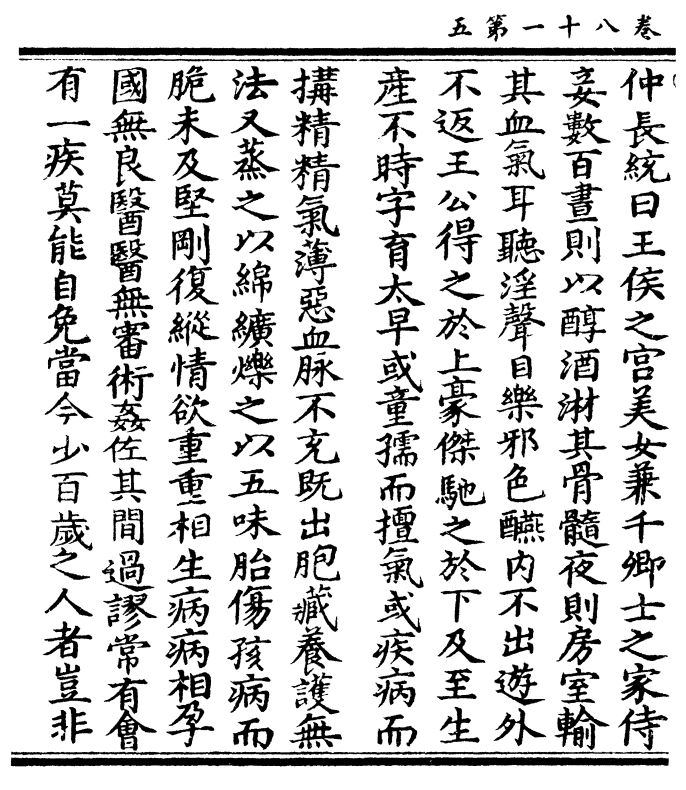 卷八十一第五
仲長統曰王侯之宮美女兼千卿士之家侍
妾數百晝則以醇酒淋其骨髓夜則房室輸
其血氣耳聽淫聲目樂邪色醼内不出遊外
不返王公得之於上豪傑馳之於下及至生
產不時字育太早或童孺而擅氣或疾病而
搆精精氣薄惡血脉不充既出胞藏養護無
法又蒸之以綿纊爍之以五味胎傷孩病而
脆未及堅剛復縱情欲重重相生病病相孕
國無良醫醫無審術姦佐其間過謬常有會
有一疾莫能自免當今少百歲之人者豈非